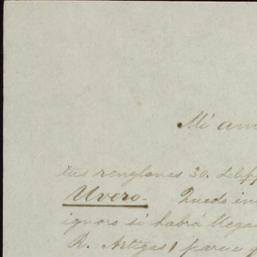 Mi am
tus renglones 30. del pp
Uvero. Quedo en
ignoro si habrá llega
R. Artigas, para q